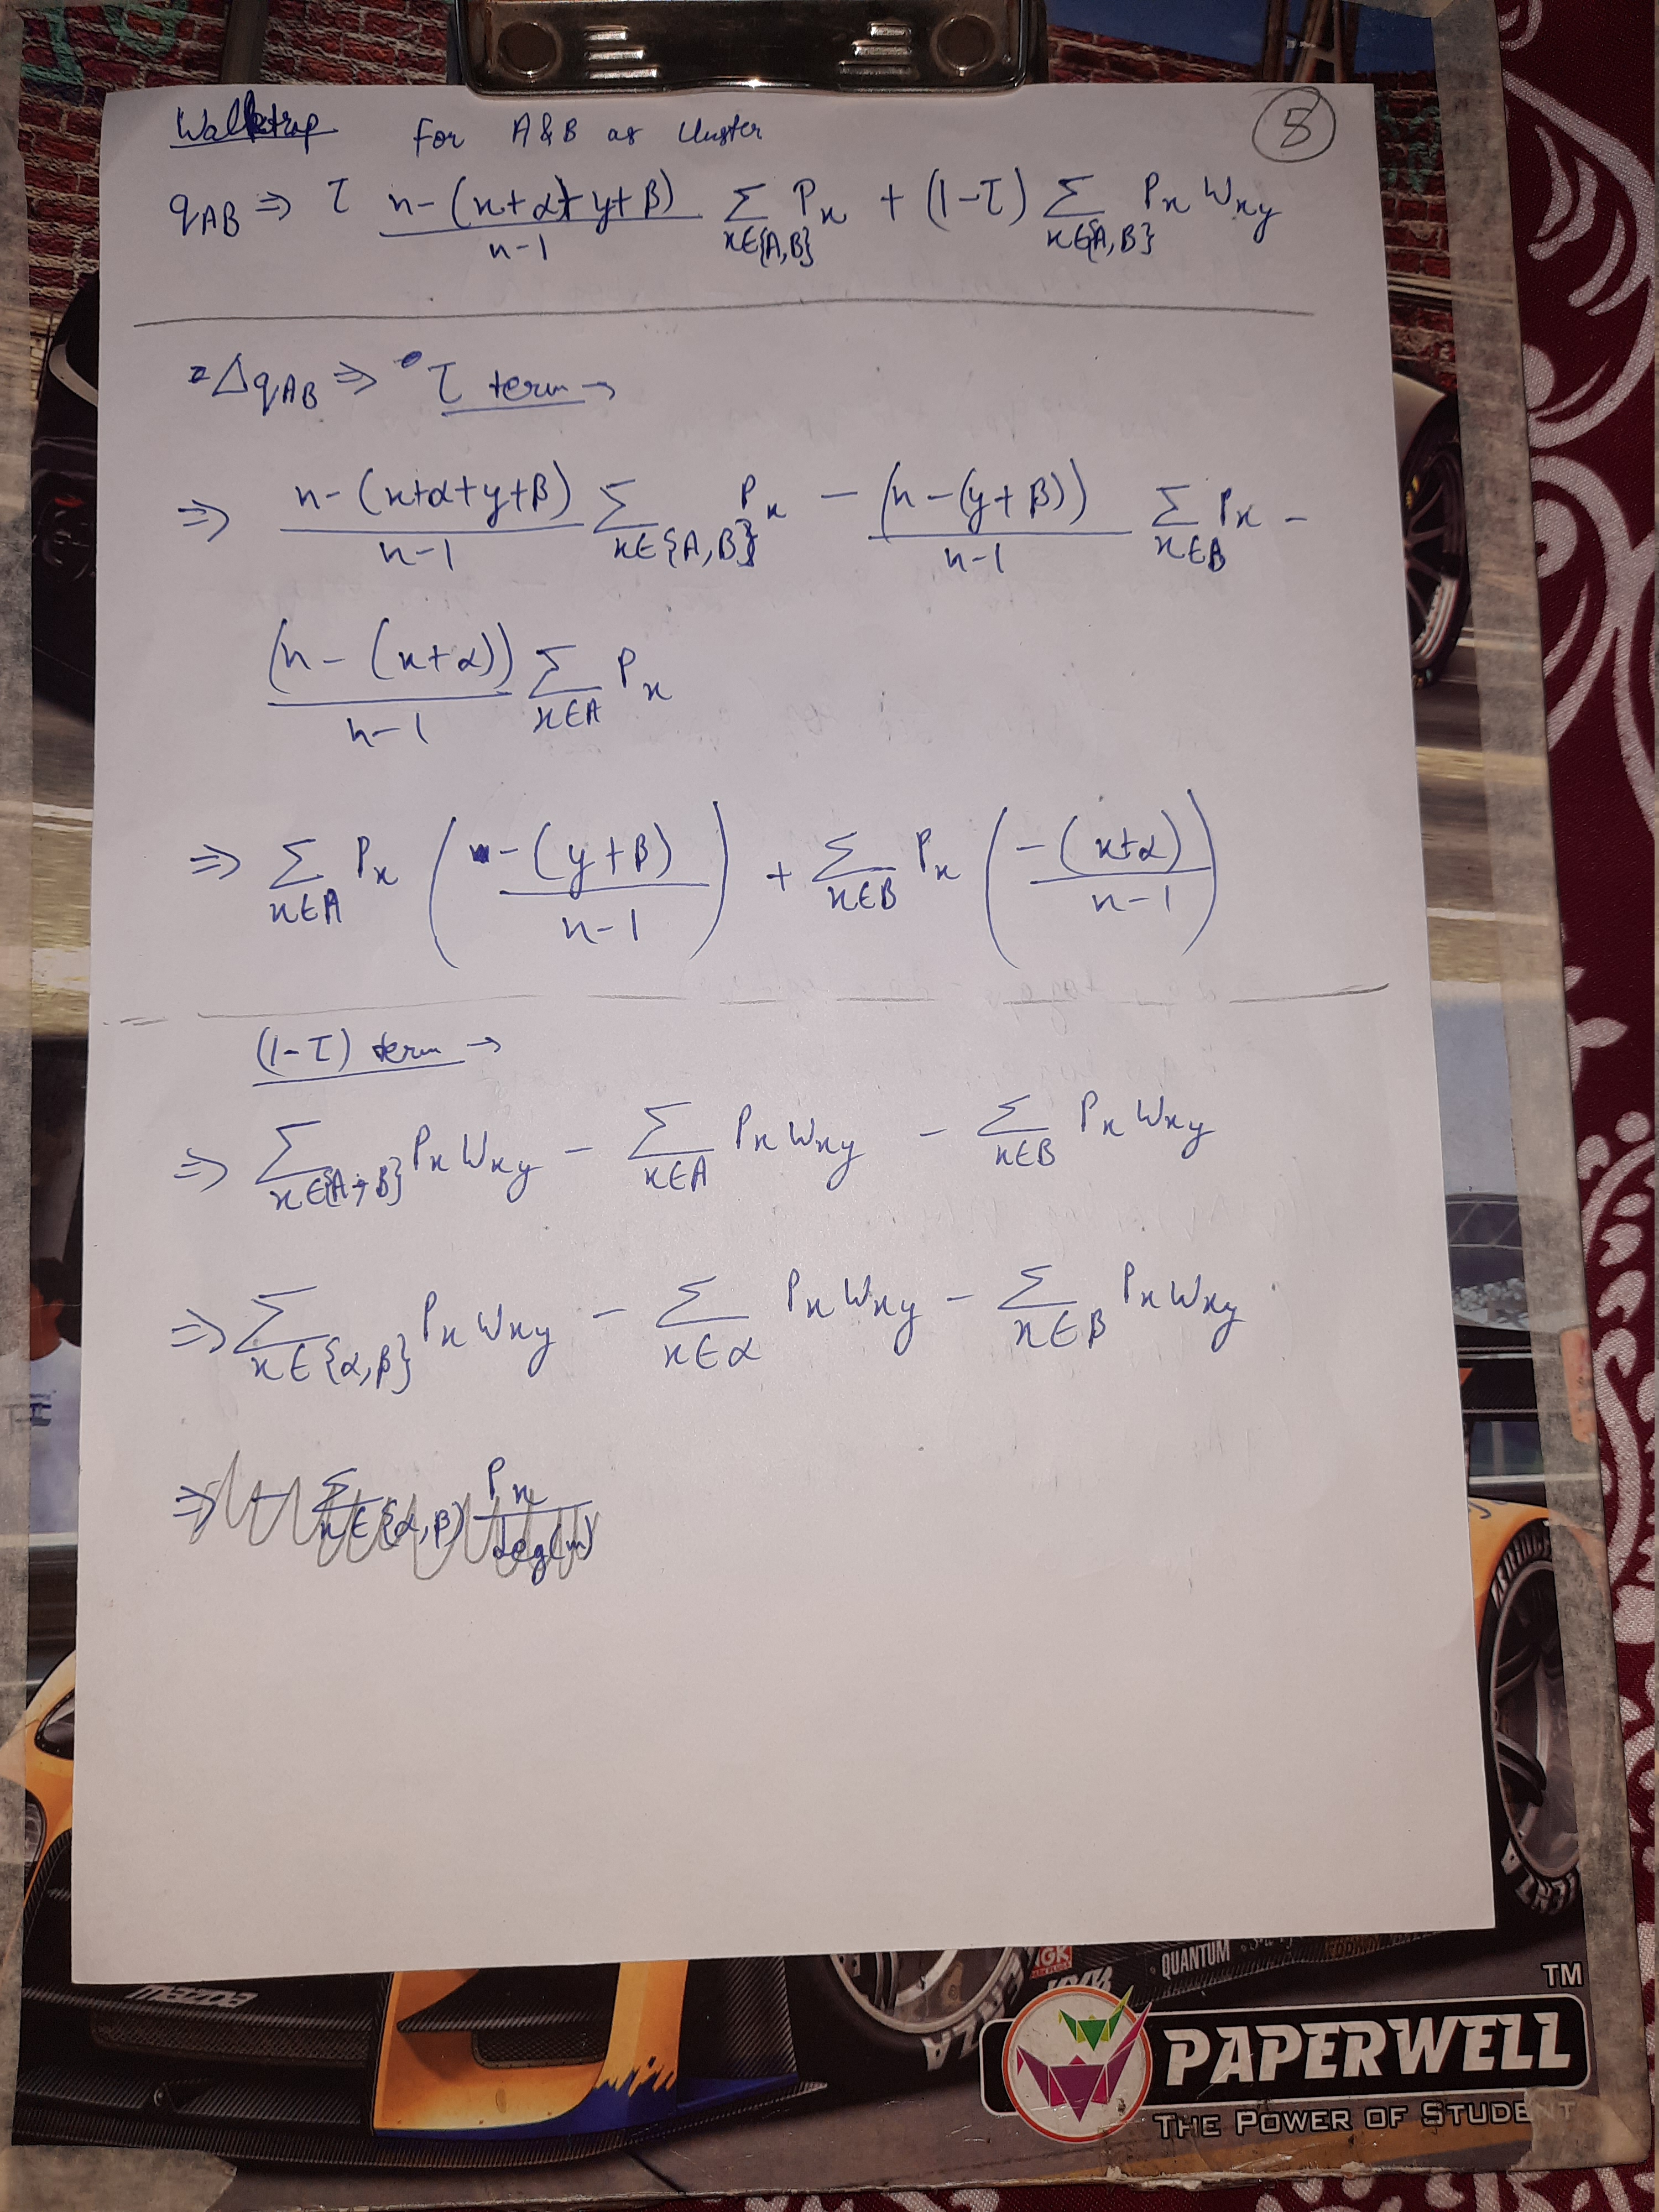 Walktrap For A & B as Cluster
5
qAB ⇒ τ n-(x+α+y+β)/n-1 Σx∈{A,B} Px + (1-τ) Σx∈{A,B} Px Wxy
ΔqAB ⇒ τ term →
⇒ n-(x+α+y+β)/n-1 Σx∈{A,B} Px - (n-(y+β))/n-1 Σx∈B Px -
(n-(x+α))/n-1 Σx∈A Px
⇒ Σx∈A Px (-(y+β)/n-1) + Σx∈B Px (-(x+α)/n-1)
(1-τ) term →
⇒ Σx∈{A+B} Px Wxy - Σx∈A Px Wxy - Σx∈B Px Wxy
⇒ Σx∈{α,β} Px Wxy - Σx∈α Px Wxy - Σx∈β Px Wxy
mazda
GK
QUANTUM
TM
PAPERWELL
THE POWER OF STUDENT